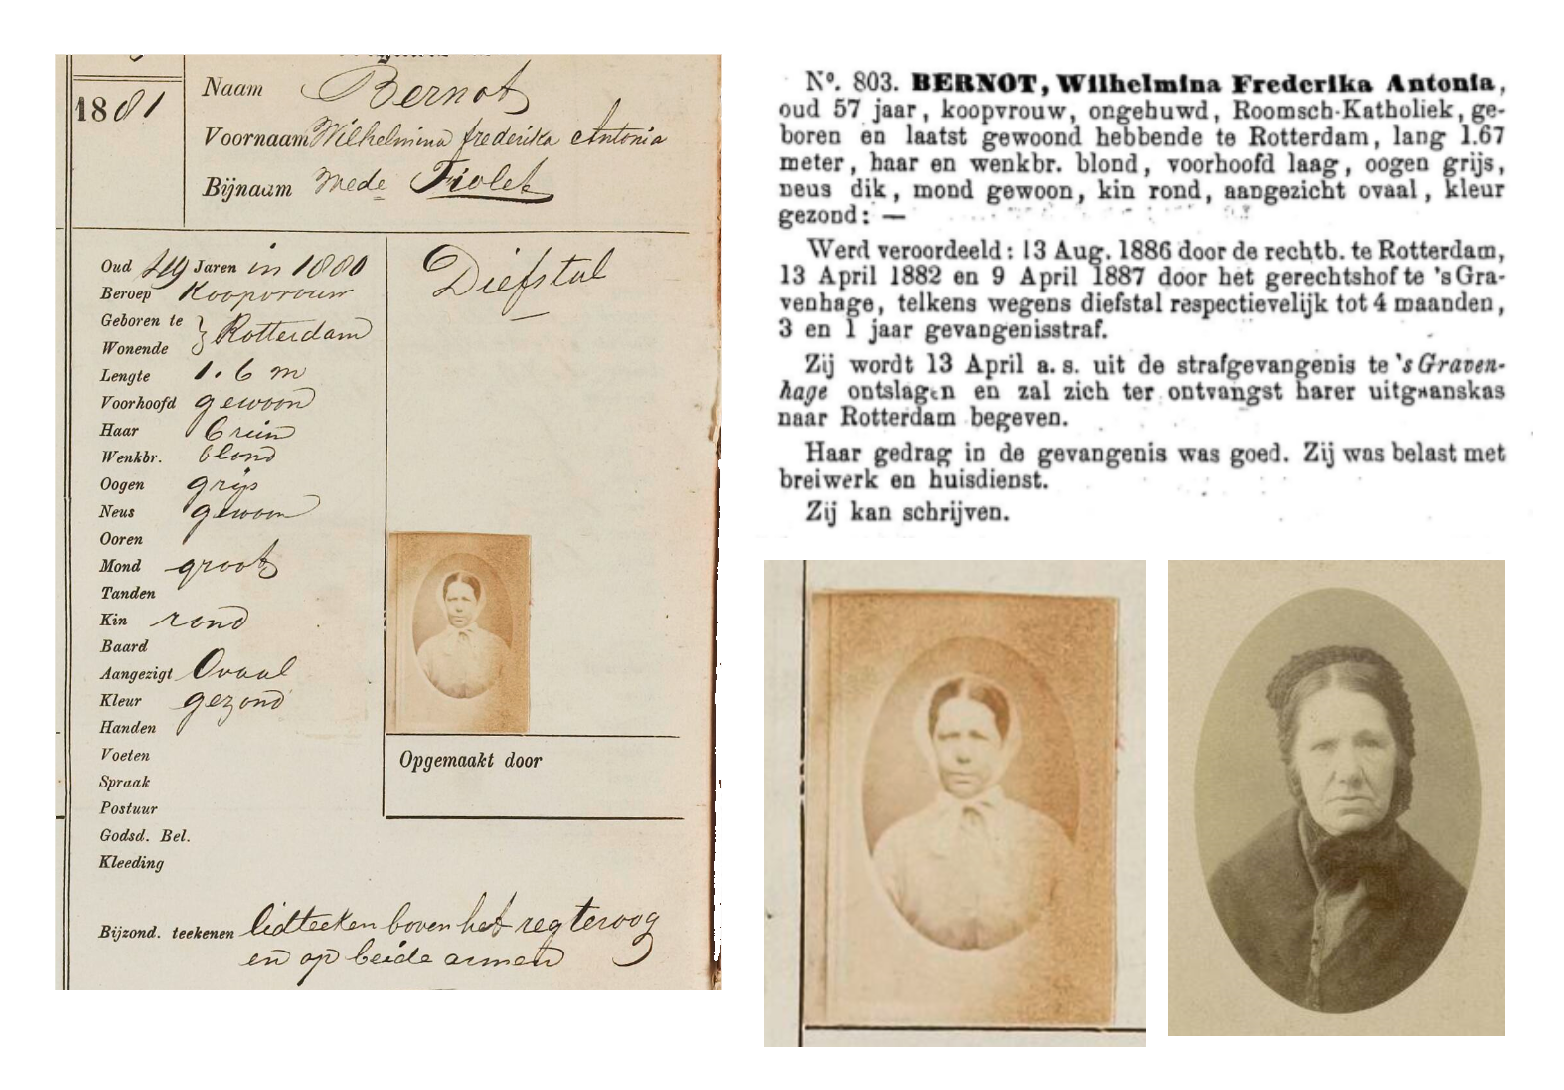 1881
Naam Bernot
Voornaam Wilhelmina frederika Antonia
Bijnaam mede Fiolet
Oud 49 Jaren in 1880
Beroep Koopvrouw
Geboren te
Wonende } Rotterdam
Lengte 1.6 m
Voorhoofd gewoon
Haar bruin
Wenkbr. blond
Oogen grijs
Neus gewoon
Ooren
Mond groot
Tanden
Kin rond
Baard
Aangezigt Ovaal
Kleur gezond
Handen
Voeten
Spraak
Postuur
Godsd. Bel.
Kleeding
Bijzond. teekenen lidteeken boven het regteroog
en op beide armen
Diefstal
Opgemaakt door
No. 803. BERNOT, Wilhelmina Frederika Antonia,
oud 57 jaar, koopvrouw, ongehuwd, Roomsch-Katholiek, ge-
boren en laatst gewoond hebbende te Rotterdam, lang 1.67
meter, haar en wenkbr. blond, voorhoofd laag, oogen grijs,
neus dik, mond gewoon, kin rond, aangezicht ovaal, kleur
gezond: —
Werd veroordeeld: 13 Aug. 1886 door de rechtb. te Rotterdam,
13 April 1882 en 9 April 1887 door het gerechtshof te 'sGra-
venhage, telkens wegens diefstal respectievelijk tot 4 maanden,
3 en 1 jaar gevangenisstraf.
Zij wordt 13 April a. s. uit de strafgevangenis te 's Graven-
hage ontslagen en zal zich ter ontvangst harer uitgaanskas
naar Rotterdam begeven.
Haar gedrag in de gevangenis was goed. Zij was belast met
breiwerk en huisdienst.
Zij kan schrijven.